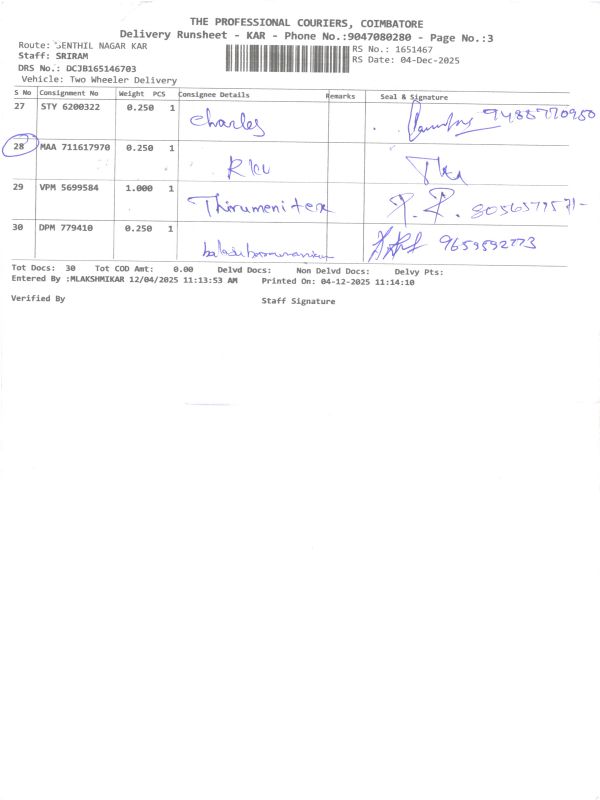 THE PROFESSIONAL COURIERS, COIMBATORE
Delivery Runsheet - KAR - Phone No.:9047080280 - Page No.:3
Route: SENTHIL NAGAR KAR
RS No.: 1651467
Staff: SRIRAM
RS Date: 04-Dec-2025
DRS No.: DCJB165146703
Vehicle: Two Wheeler Delivery
S No Consignment No Weight PCS Consignee Details Remarks Seal & Signature
27 STY 6200322 0.250 1 Charles 9488770950
28 MAA 711617970 0.250 1
29 VPM 5699584 1.000 1 Thirumenitex 8056577571-
30 DPM 779410 0.250 1 9659592773
Tot Docs: 30 Tot COD Amt: 0.00 Delvd Docs: Non Delvd Docs: Delvy Pts:
Entered By :MLAKSHMIKAR 12/04/2025 11:13:53 AM Printed On: 04-12-2025 11:14:10
Verified By Staff Signature